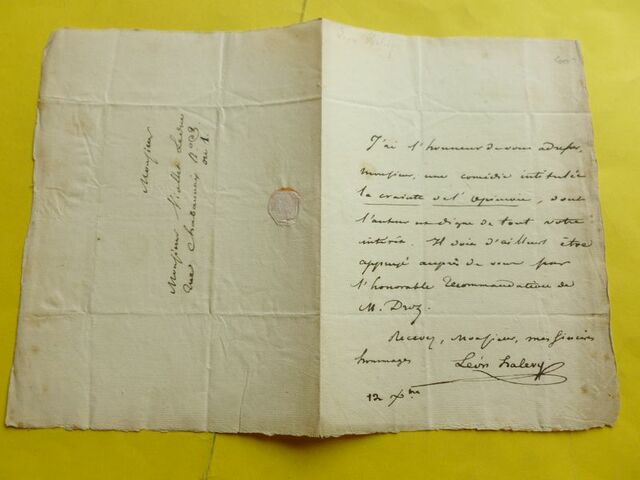 Monsieur
Monsieur Viollet Leduc
rue Chabannais N°
ou 1.
J'ai l'honneur de vous adresser,
monsieur, une comédie intitulée
la crainte de l'opinion, dont
l'auteur est digne de tout votre
intérêt. Il doit d'ailleurs être
appuyé auprès de vous par
l'honorable recommandation de
M. Droz.
Recevez, Monsieur, mes sincères
hommages
Léon halevy
12 Xbre